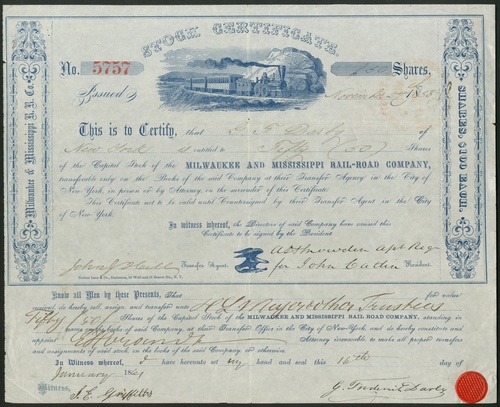 STOCK CERTIFICATE
No. 5757
Shares,
Issued
Milwaukee & Mississippi R. R. Co.
SHARES $100 EACH.
This is to Certify, that G. F. Darby of
New York is entitled to Fifty (50) Shares
of the Capital Stock of the MILWAUKEE AND MISSISSIPPI RAIL-ROAD COMPANY,
transferable only on the Books of the said Company at their Transfer Agency in the City of
New-York, in person or by Attorney, on the surrender of this Certificate.
This Certificate not to be valid until Countersigned by their Transfer Agent in the City
of New-York.
In witness whereof, the Directors of said Company have caused this
Certificate to be signed by the President
Transfer Agent.
for John Catlin President.
Know all Men by these Presents, That
for value
received, do hereby sell, assign and transfer unto
Fifty Shares of the Capital Stock of the MILWAUKEE AND MISSISSIPPI RAIL ROAD COMPANY, standing in
name on the books of said Company, at their Transfer Office in the City of New-York, and do hereby constitute and
appoint Attorney irrevocable, to make all proper transfers
and assignments of said stock on the books of the said Company or otherwise.
In Witness whereof, I have hereunto set my hand and seal this 16th day of
January 1861
Witness,
J. E. Griffiths
G. Frederick Darby